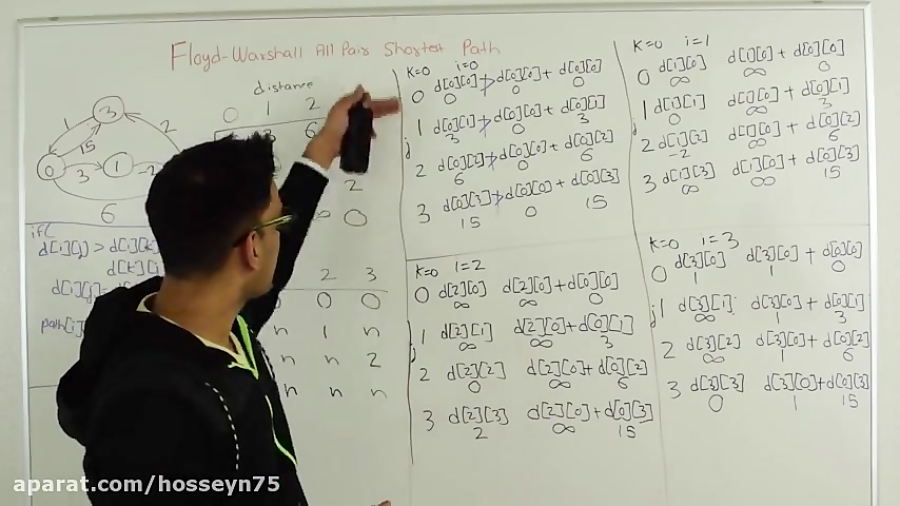 Floyd-Warshall All Pair Shortest Path
distance
0 1 2
6
2
∞ 0
3
1
15
2
0 3 1 -2
6
if(
d[i][j] > d[i][k]
d[k][j
d[i][j]=
path[i]
2 3
0 0
n 1 n
n n 2
n n n
K=0 i=0
0 d[0][0] > d[0][0] + d[0][0]
0 0 0
j
1 d[0][1] > d[0][0] + d[0][1]
3 0 3
2 d[0][2] > d[0][0] + d[0][2]
6 0 6
3 d[0][3] > d[0][0] + d[0][3]
15 0 15
K=0 i=1
0 d[1][0] d[1][0] + d[0][0]
∞ ∞ 0
1 d[1][1] d[1][0] + d[0][1]
0 ∞ 3
2 d[1][2] d[1][0] + d[0][2]
-2 ∞ 6
3 d[1][3] d[1][0] + d[0][3]
∞ ∞ 15
K=0 i=2
0 d[2][0] d[2][0] + d[0][0]
∞ ∞ 0
j
1 d[2][1] d[2][0] + d[0][1]
∞ ∞ 3
2 d[2][2] d[2][0] + d[0][2]
0 ∞ 6
3 d[2][3] d[2][0] + d[0][3]
2 ∞ 15
K=0 i=3
0 d[3][0] d[3][0] + d[0][0]
1 1 0
j 1 d[3][1] d[3][0] + d[0][1]
∞ 1 3
2 d[3][2] d[3][0] + d[0][2]
∞ 1 6
3 d[3][3] d[3][0] + d[0][3]
0 1 15
aparat.com/hosseyn75